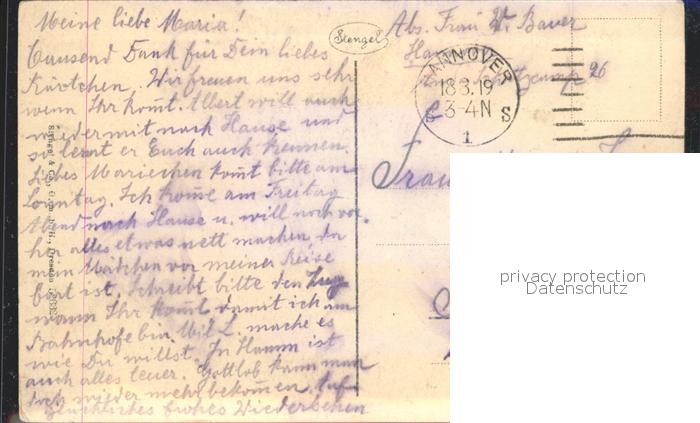 Meine liebe Maria!
Tausend Dank für Dein liebes
Kärtchen. Wir freuen uns sehr
wenn Ihr kom̅t. Albert will auch
wieder mit nach Hause und
so lernt er Euch auch kennen.
Liebes Mariechen kom̅t bitte am
Sonntag. Ich kom̅e am Freitag
Abend nach Hause u. will noch vor-
her alles etwas nett machen, da
mein Mädchen vor meiner Reise
fort ist. Schreibt bitte den Zug
wann Ihr kom̅t damit ich am
Bahnhofe bin. Mit L. mache es
wie Du willst. In Hamm ist
auch alles teuer. Gottlob kann man
doch wieder mehr bekom̅en. Auf
glückliches frohes Wiedersehen
Stengel & Co., G.m.b.H., Dresden
Stengel
Abs. Frau W. Bauer
HANNOVER
18.3.19
3-4N
S
1
26
Frau
privacy protection
Datenschutz